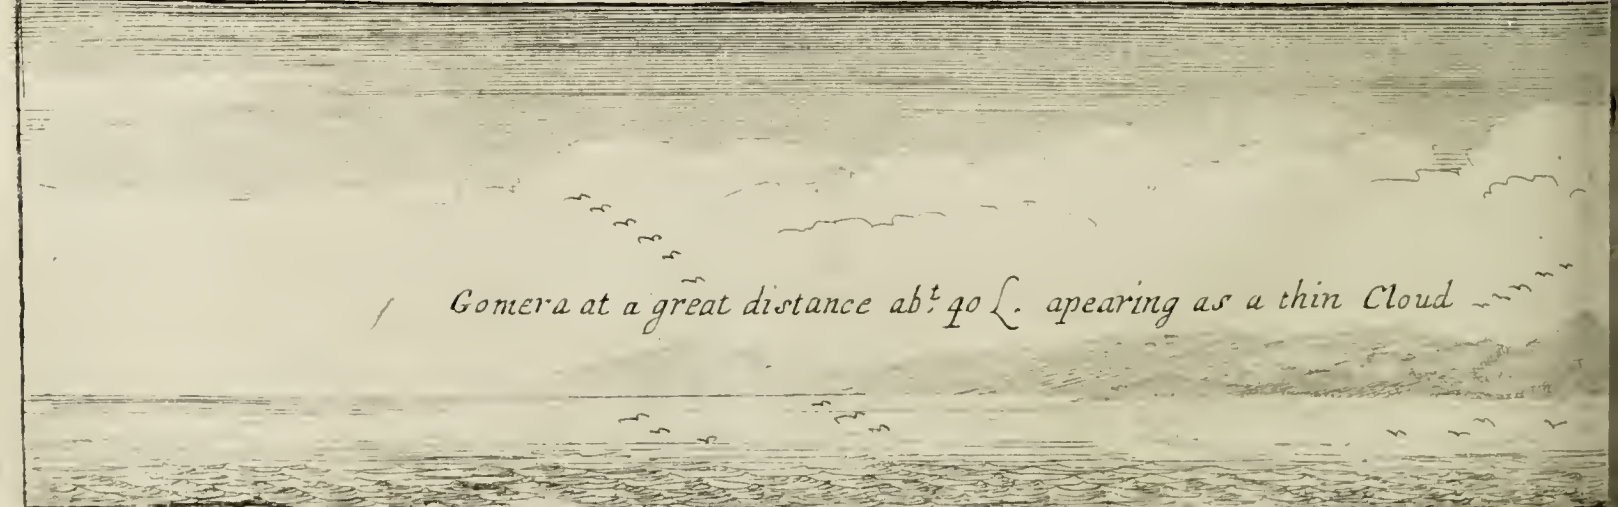 Gomera at a great distance abᵗ. 40 L. apearing as a thin Cloud